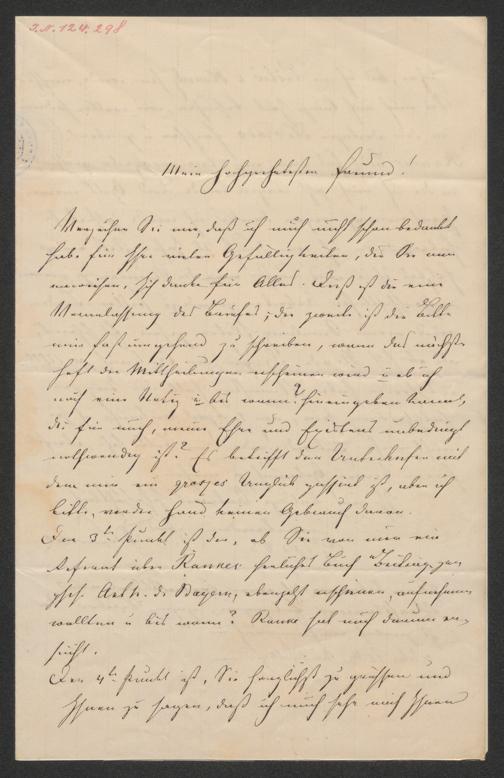 J.N. 124.298
Mein hochverehrtester Freund!
Verzeihen Sie mir, daß ich mich nicht schon bedankt
habe für Ihre vielen Gefälligkeiten, die Sie mir
erweisen, ich danke für Alles. Dieß ist die eine
Veranlassung des Briefes; die zweite ist die Bitte
mir fast umgehend zu schreiben, wann das nächste
Heft der Mittheilungen erscheinen wird u ob ich
noch eine Notiz u bis wann? hineingeben kann,
die für mich, meine Ehre und Existenz unbedingt
nothwendig ist? Es betrifft den Unterkiefer mit
dem mir ein großes Unglück passirt ist, aber ich
bitte, vorder Hand keinen Gebrauch davon.
Der 3te Punkt ist der, ob Sie von mir ein
Referat über Rankes herrliches Buch "Beiträge zur
phys. Anth. d. Bayern, ebenjetzt erschienen, aufnehmen
wollten u bis wann? Ranke hat mich darum er-
sucht.
Der 4te Punkt ist, Sie herzlichst zu grüßen und
Ihnen zu sagen, daß ich mich sehr nach Ihnen